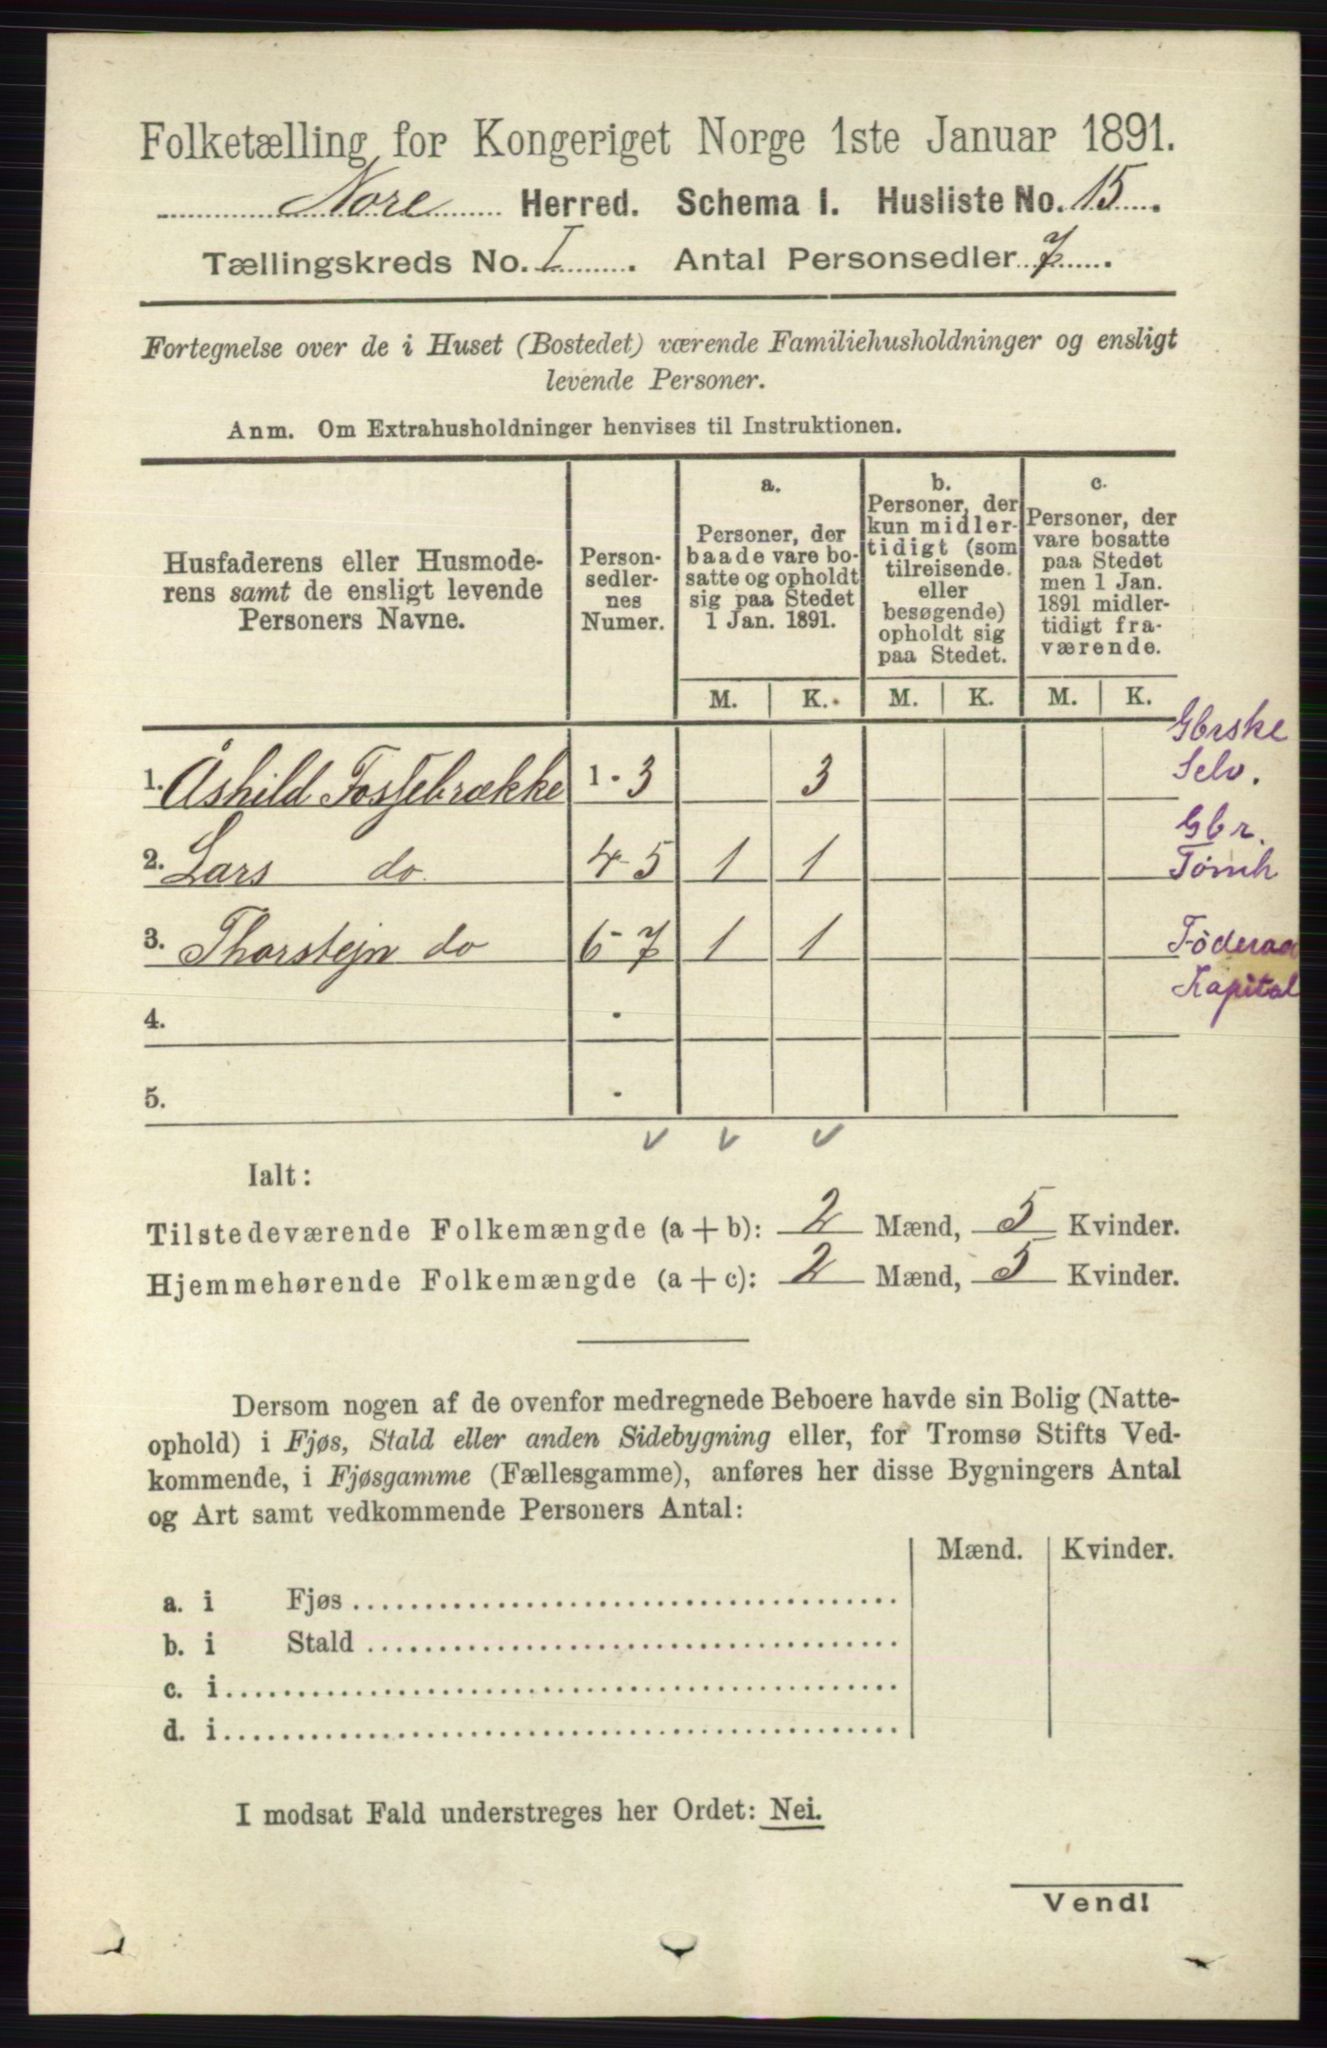 Folketælling for Kongeriget Norge 1ste Januar 1891.
Nore Herred. Schema I. Husliste No. 15.
Tællingskreds No. I. Antal Personsedler 7.
Fortegnelse over de i Huset (Bostedet) værende Familiehusholdninger og ensligt
levende Personer.
Anm. Om Extrahusholdninger henvises til Instruktionen.
Husfaderens eller Husmode-
rens samt de ensligt levende
Personers Navne.
Person-
sedler-
nes
Numer.
a.
Personer, der
baade vare bo-
satte og opholdt
sig paa Stedet
1 Jan. 1891.
b.
Personer, der
kun midler-
tidigt (som
tilreisende
eller
besøgende)
opholdt sig
paa Stedet.
c.
Personer, der
vare bosatte
paa Stedet
men 1 Jan.
1891 midler-
tidigt fra-
værende.
M. K. M. K. M. K.
Gbrske
Selv.
1. Åshild Fossebrække 1 - 3 3
Gbr.
2. Lars do. 4-5 1 1 Tømh
3. Thorstejn do 6-7 1 1 Føderaa
Kapital
4. -
5. -
Ialt:
Tilstedeværende Folkemængde (a + b): 2 Mænd, 5 Kvinder.
Hjemmehørende Folkemængde (a + c): 2 Mænd, 5 Kvinder.
Dersom nogen af de ovenfor medregnede Beboere havde sin Bolig (Natte-
ophold) i Fjøs, Stald eller anden Sidebygning eller, for Tromsø Stifts Ved-
kommende, i Fjøsgamme (Fællesgamme), anføres her disse Bygningers Antal
og Art samt vedkommende Personers Antal:
Mænd. Kvinder.
a. i Fjøs
b. i Stald
c. i
d. i
I modsat Fald understreges her Ordet: Nei.
Vend!